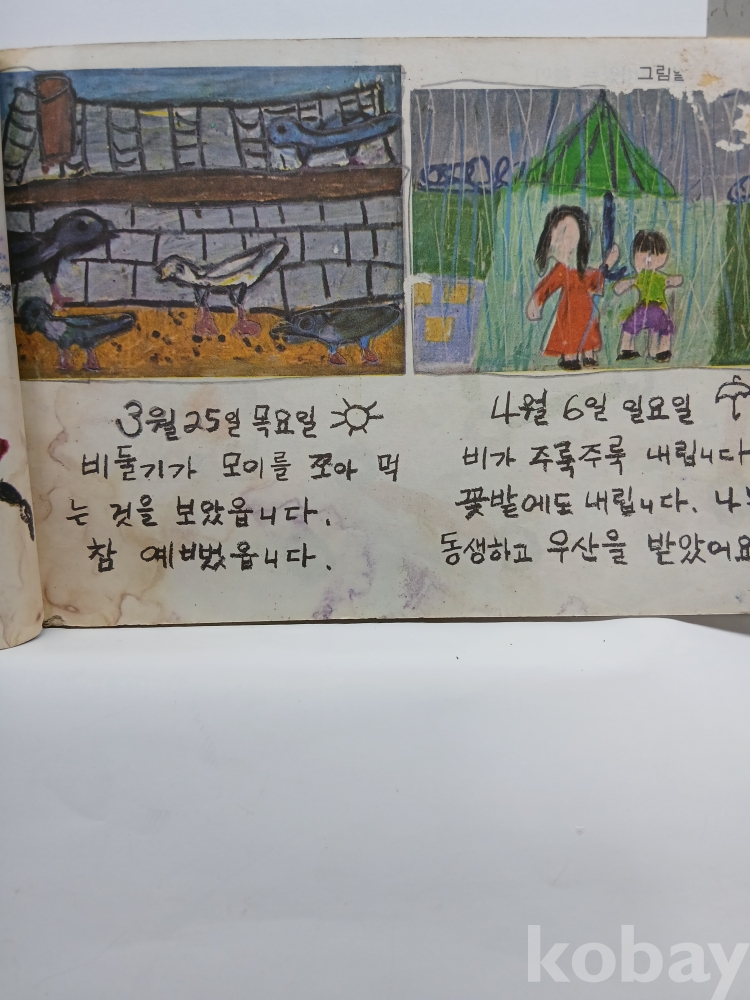 3월 25일 목요일
비둘기가 모이를 쪼아 먹
는 것을 보았읍니다.
참 예뻤읍니다.
4월 6일 일요일
비가 주룩주룩 내립니다
꽃밭에도 내립니다.
동생하고 우산을 받았어요
kobay